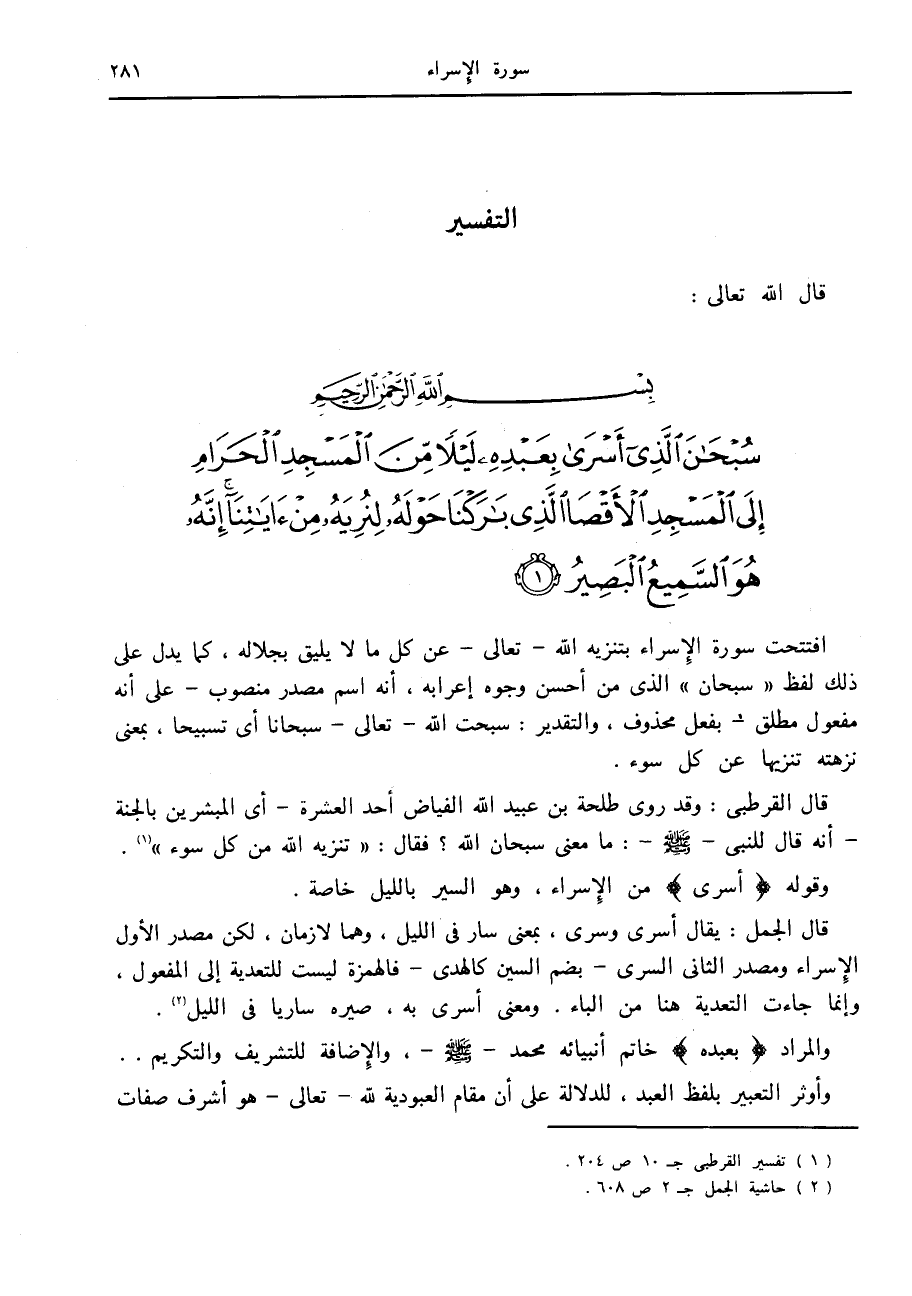 سورة الإسراء ٢٨١
التفسير
قال الله تعالى :
بِسْمِ اللَّهِ الرَّحْمَٰنِ الرَّحِيمِ
سُبْحَٰنَ ٱلَّذِىٓ أَسْرَىٰ بِعَبْدِهِۦ لَيْلًا مِّنَ ٱلْمَسْجِدِ ٱلْحَرَامِ
إِلَى ٱلْمَسْجِدِ ٱلْأَقْصَا ٱلَّذِى بَٰرَكْنَا حَوْلَهُۥ لِنُرِيَهُۥ مِنْ ءَايَٰتِنَآ ۚ إِنَّهُۥ
هُوَ ٱلسَّمِيعُ ٱلْبَصِيرُ ١
افتتحت سورة الإسراء بتنزيه الله – تعالى – عن كل ما لا يليق بجلاله ، كما يدل على
ذلك لفظ « سبحان » الذى من أحسن وجوه إعرابه ، أنه اسم مصدر منصوب – على أنه
مفعول مطلق – بفعل محذوف ، والتقدير : سبحت الله – تعالى – سبحانا أى تسبيحا ، بمعنى
نزهته تنزيها عن كل سوء .
قال القرطبى : وقد روى طلحة بن عبيد الله الفياض أحد العشرة – أى المبشرين بالجنة
– أنه قال للنبى – ﷺ – : ما معنى سبحان الله ؟ فقال : « تنزيه الله من كل سوء »(١) .
وقوله ﴿ أسرى ﴾ من الإسراء ، وهو السير بالليل خاصة .
قال الجمل : يقال أسرى وسرى ، بمعنى سار فى الليل ، وهما لازمان ، لكن مصدر الأول
الإسراء ومصدر الثانى السرى – بضم السين كالهدى – فالهمزة ليست للتعدية إلى المفعول ،
وإنما جاءت التعدية هنا من الباء . ومعنى أسرى به ، صيره ساريا فى الليل(٢) .
والمراد ﴿ بعبده ﴾ خاتم أنبيائه محمد – ﷺ – ، والإضافة للتشريف والتكريم . .
وأوثر التعبير بلفظ العبد ، للدلالة على أن مقام العبودية لله – تعالى – هو أشرف صفات
( ١ ) تفسير القرطبى جـ ١٠ ص ٢٠٤ .
( ٢ ) حاشية الجمل جـ ٢ ص ٦٠٨ .